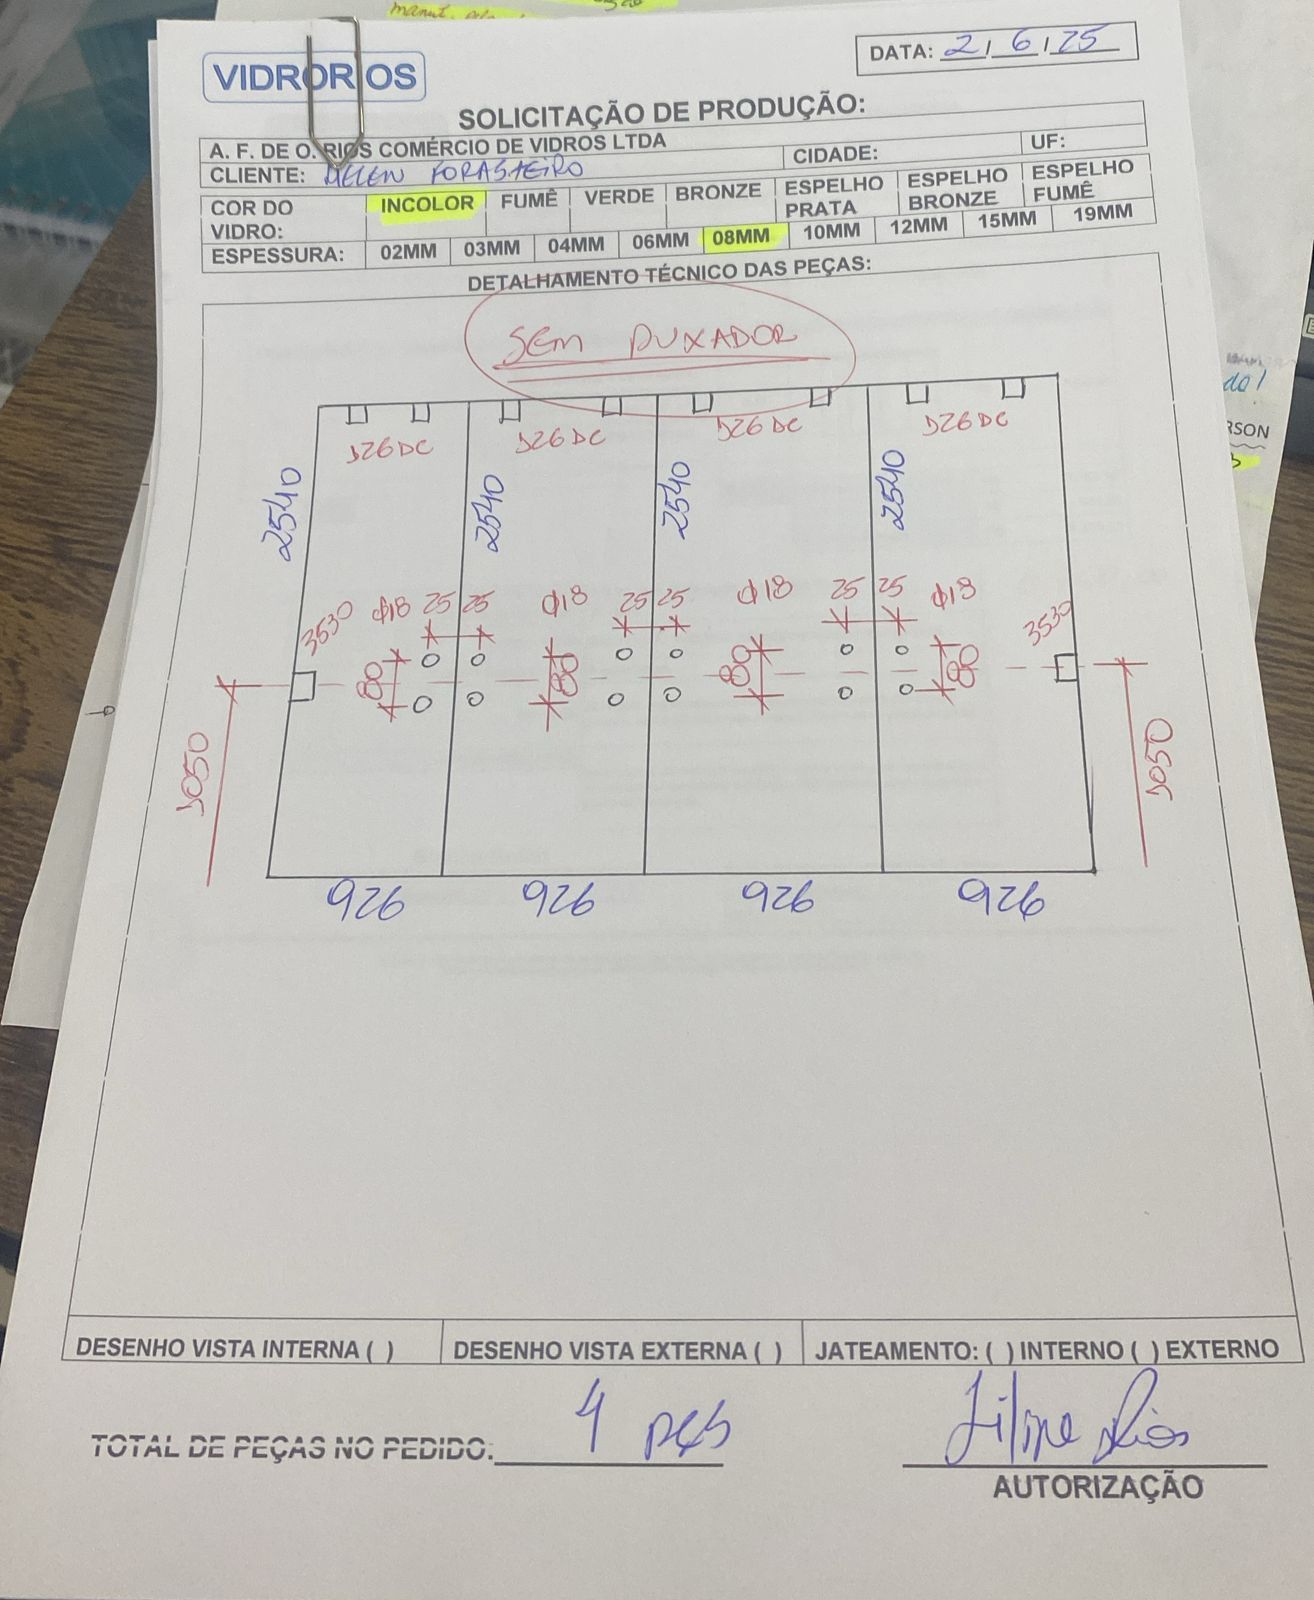 manut.
VIDRORIOS
DATA: 2/6/25
SOLICITAÇÃO DE PRODUÇÃO:
A. F. DE O. RIOS COMÉRCIO DE VIDROS LTDA
CLIENTE: HELEN FORASTEIRO CIDADE: UF:
COR DO VIDRO: INCOLOR FUMÊ VERDE BRONZE ESPELHO PRATA ESPELHO BRONZE ESPELHO FUMÊ
ESPESSURA: 02MM 03MM 04MM 06MM 08MM 10MM 12MM 15MM 19MM
DETALHAMENTO TÉCNICO DAS PEÇAS:
SEM PUXADOR
do!
RSON
J26 DC J26 DC J26 DC J26 DC
2540 2540 2540 2540
3530 φ18 25 25 φ18 25 25 φ18 25 25 φ18 3530
80 80 80 80
1050 1050
926 926 926 926
DESENHO VISTA INTERNA ( ) DESENHO VISTA EXTERNA ( ) JATEAMENTO: ( ) INTERNO ( ) EXTERNO
TOTAL DE PEÇAS NO PEDIDO: 4 pçs
Filipe Rios
AUTORIZAÇÃO